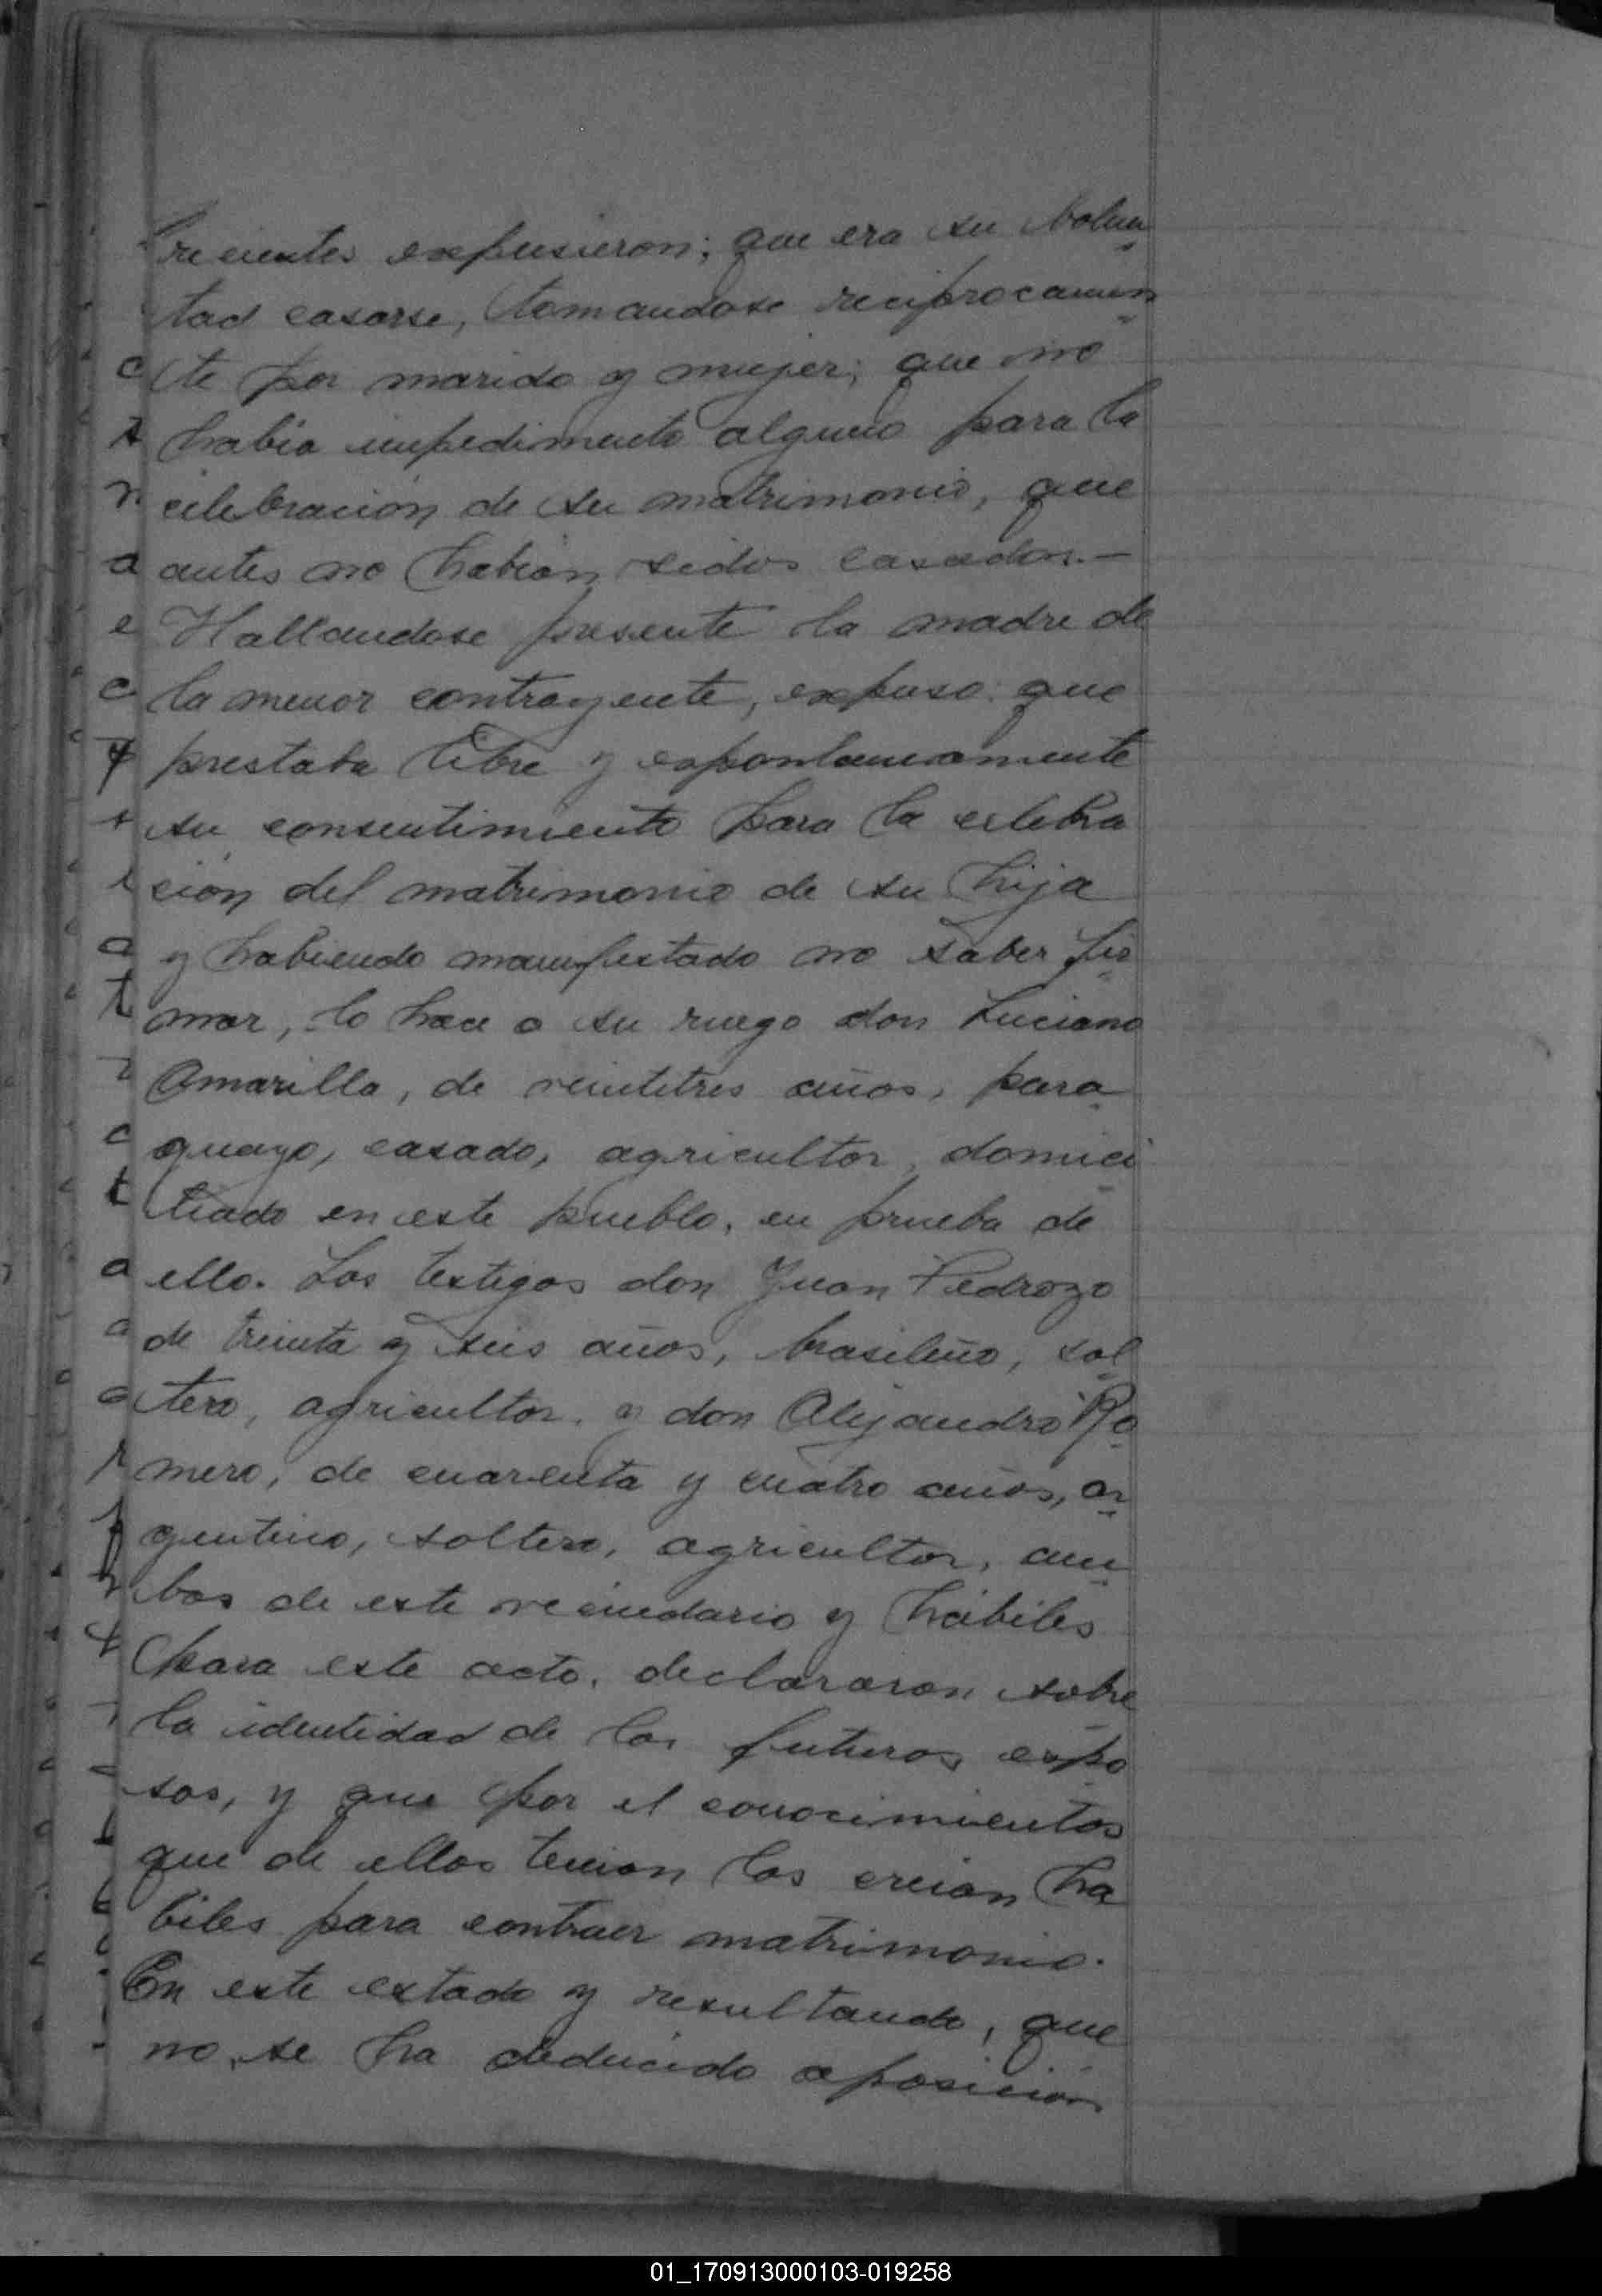 recientes expusieron; que era su volun
tad casarse, tomandose reciprocamen
te por marido y mujer; que no
habia impedimento alguno para la
celebración de su matrimonio, que
antes no habian sidos casados.—
Hallandose presente la madre de
la menor contrayente, expuso: que
prestaba libre y espontaneamente
su consentimiento para la celebra
ción del matrimonio de su hija
y habiendo manifestado no saber fir
mar, lo hace a su ruego don Luciano
Amarilla, de veintitres años, para
guayo, casado, agricultor, domici
liado en este pueblo, en prueba de
ello. Los testigos don Juan Pedrozo
de treinta y seis años, brasileño, sol
tero, agricultor, y don Alejandro Ro
mero, de cuarenta y cuatro años, ar
gentino, soltero, agricultor, am
bos de este vecindario y hábiles
para este acto, declararon sobre
la identidad de los futuros espo
sos, y que por el conocimientos
que de ellos tenian los creian ha
biles para contraer matrimonio.
En este estado y resultando, que
no se ha deducido oposición
01_170913000103-019258